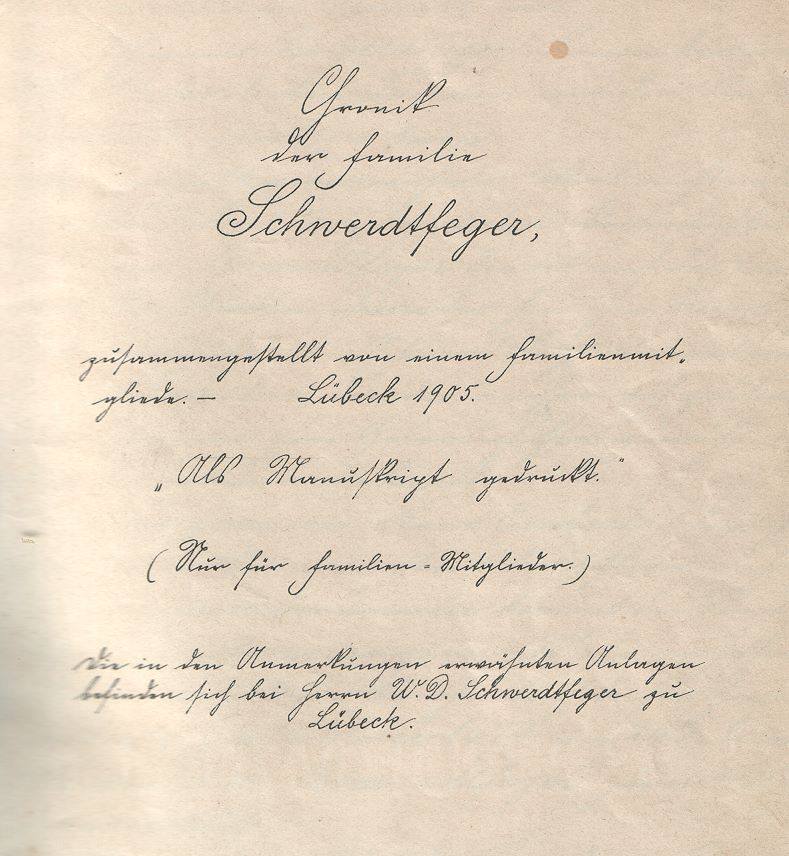 Chronik
der Familie
Schwerdtfeger,
zusammengestellt von einem Familienmit-
gliede. — Lübeck 1905.
„Als Manuskript gedruckt.“
(Nur für Familien-Mitglieder.)
Die in den Anmerkungen erwähnten Anlagen
befinden sich bei Herrn W. D. Schwerdtfeger zu
Lübeck.